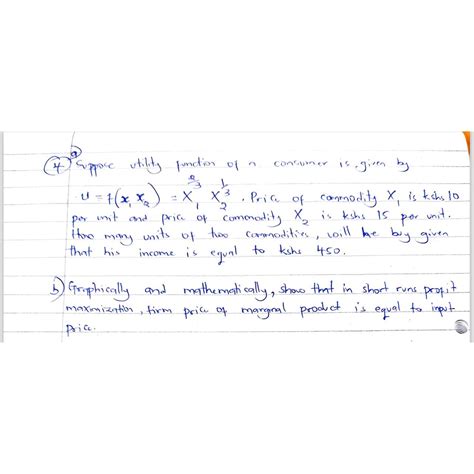 4 a) Suppose utility function of a consumer is given by
U = f(x₁ x₂) = X₁^(2/3) X₂^(1/3). Price of commodity X₁ is kshs 10
per unit and price of commodity X₂ is kshs 15 per unit.
How many units of two commodities, will he buy given
that his income is equal to kshs 450.
b) Graphically and mathematically, show that in short runs profit
maximization, firm price of marginal product is equal to input
price.